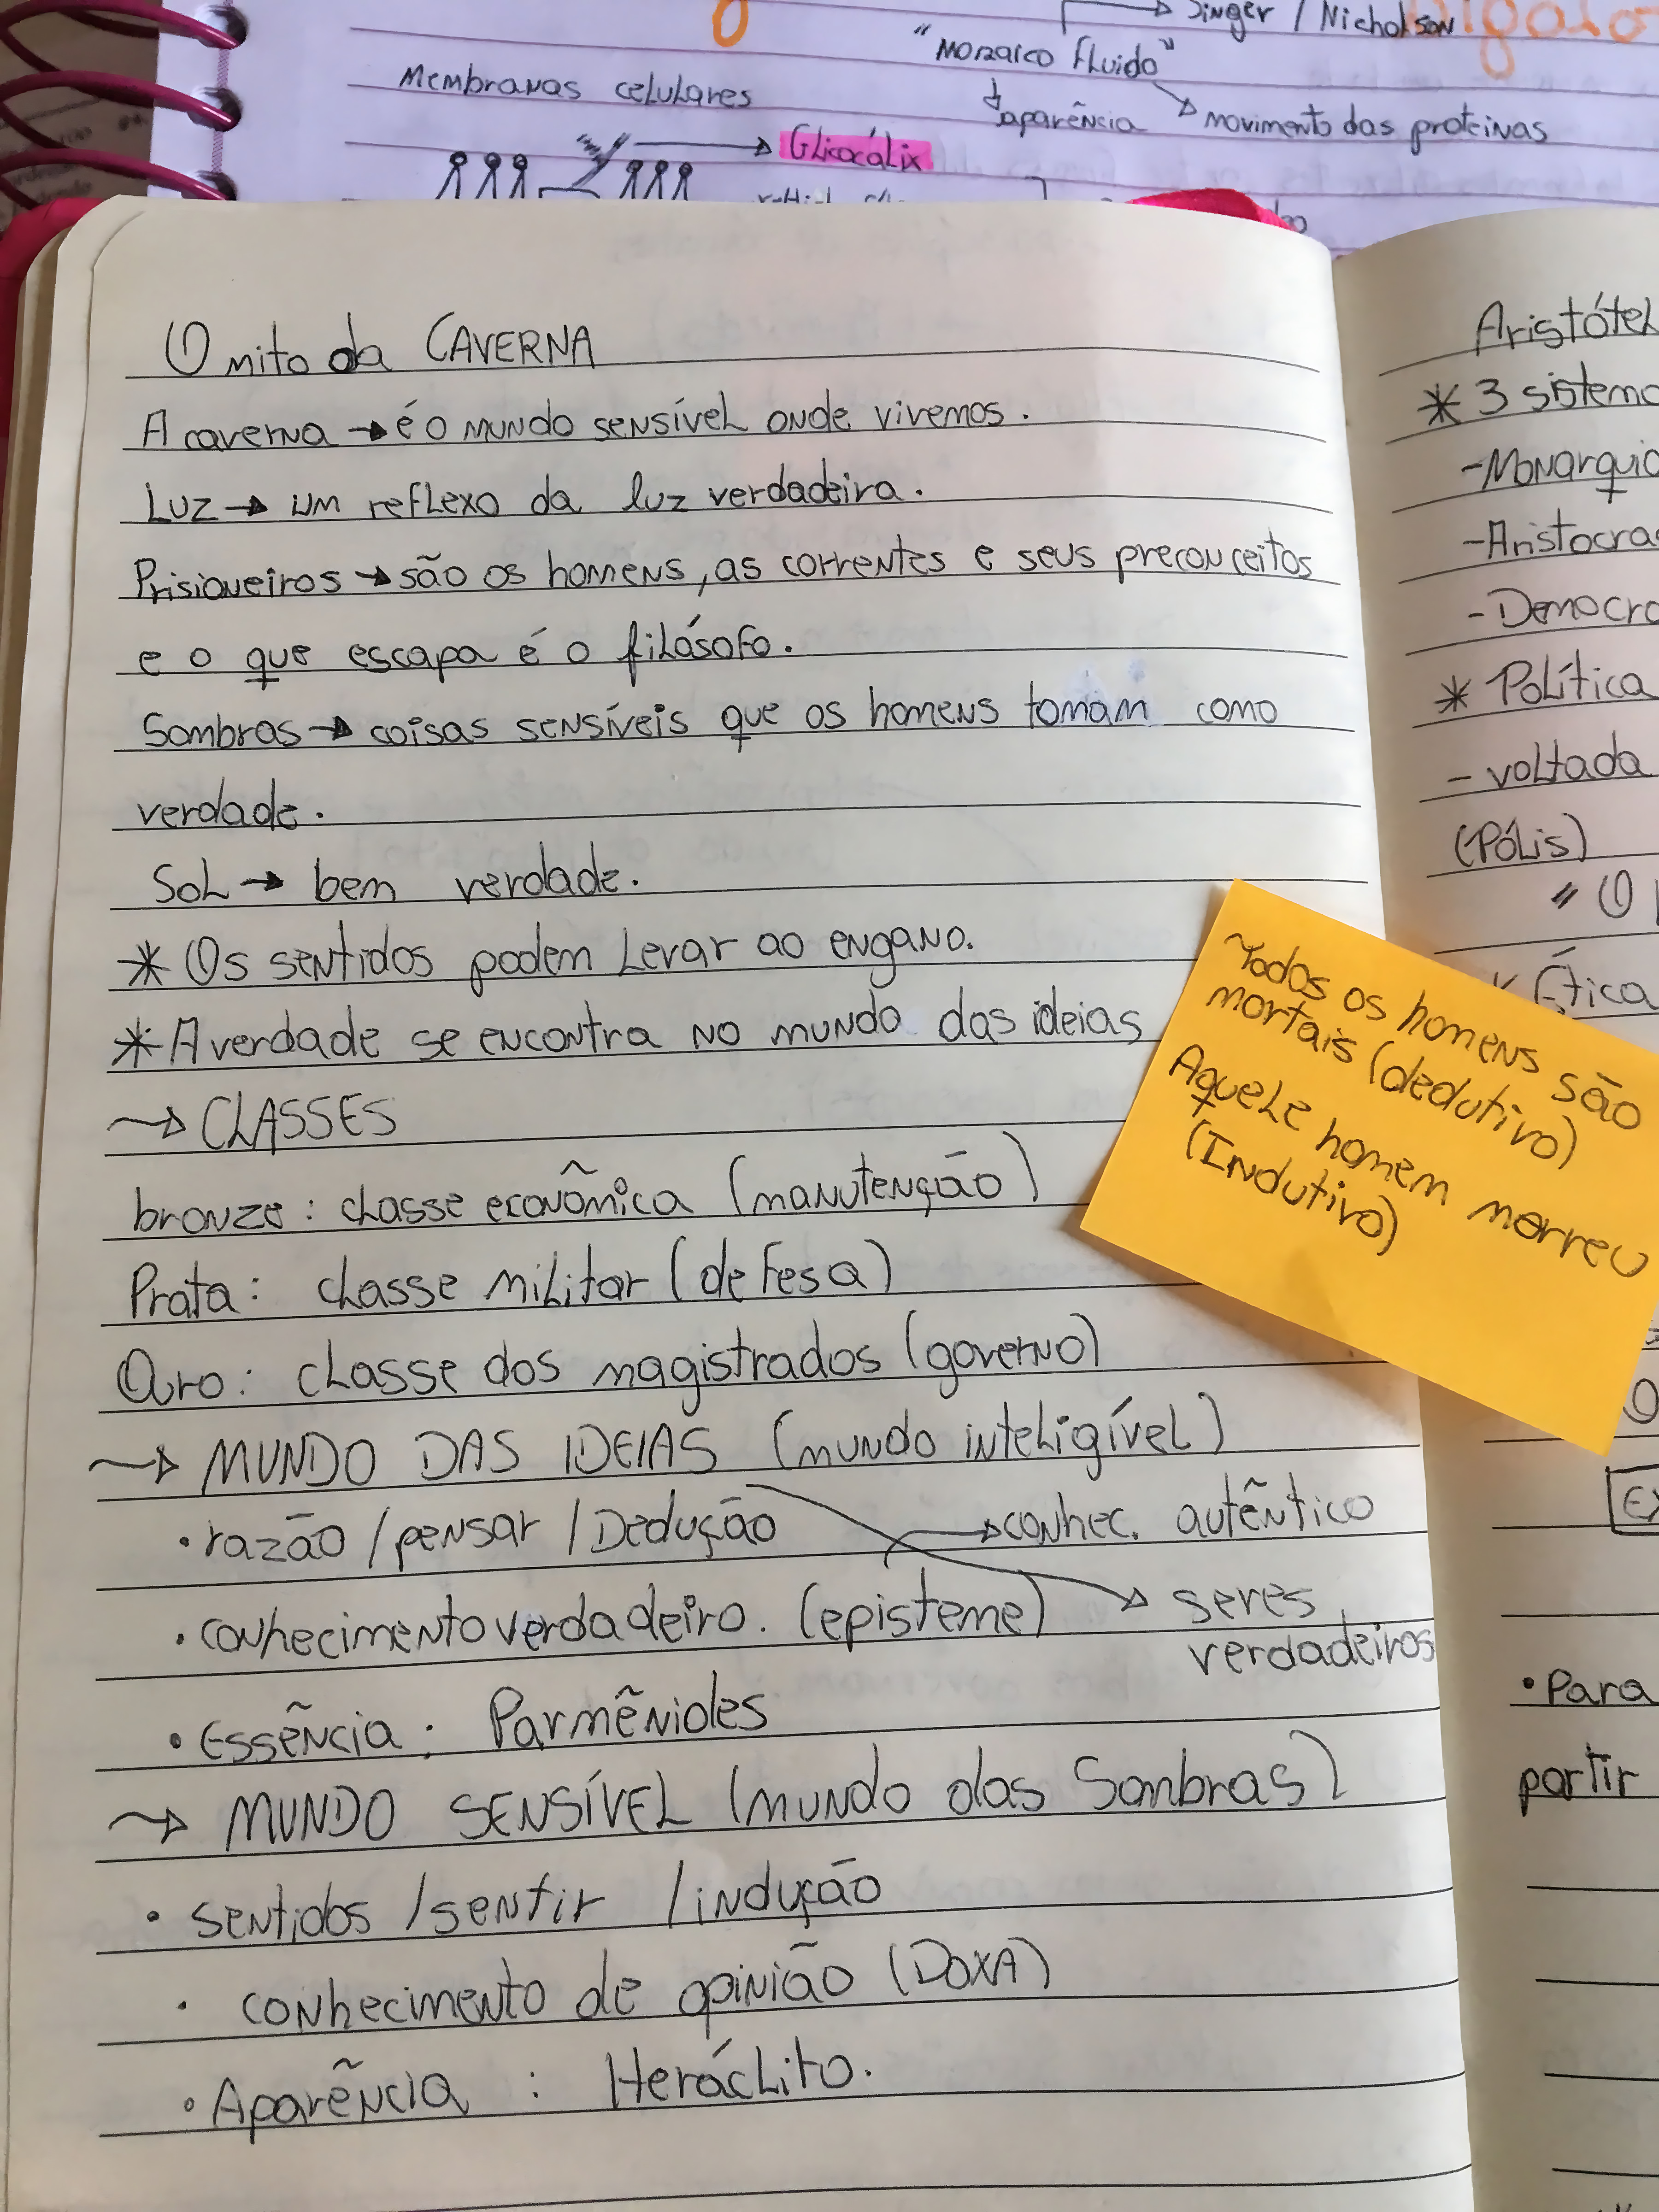 Singer / Nicholson
"Mozaico Fluido"
Membranas celulares
aparência movimento das proteinas
Glicocálix
O mito da CAVERNA
A caverna → é o mundo sensível onde vivemos.
Luz → um reflexo da luz verdadeira.
Prisioneiros → são os homens, as correntes e seus preconceitos
e o que escapa é o filósofo.
Sombras → coisas sensíveis que os homens tomam como
verdade.
Sol → bem verdade.
* Os sentidos podem levar ao engano.
* A verdade se encontra no mundo das ideias
→ CLASSES
bronze: classe econômica (manutenção)
Prata: classe militar (defesa)
Ouro: classe dos magistrados (governo)
→ MUNDO DAS IDEIAS (mundo inteligível)
• razão / pensar / Dedução → conhec. autêntico
• conhecimento verdadeiro. (episteme) → seres
verdadeiros
• Essência: Parmênides
→ MUNDO SENSÍVEL (mundo das Sombras)
• sentidos / sentir / indução
• conhecimento de opinião (DOXA)
• Aparência : Heráclito.
Todos os homens são
mortais (dedutivo)
Aquele homem morreu
(Indutivo)
Aristótel
* 3 sistema
- Monarquia
- Aristocra
- Democra
* Política
- voltada
(Pólis)
" O
Ética
Ex
• Para
partir